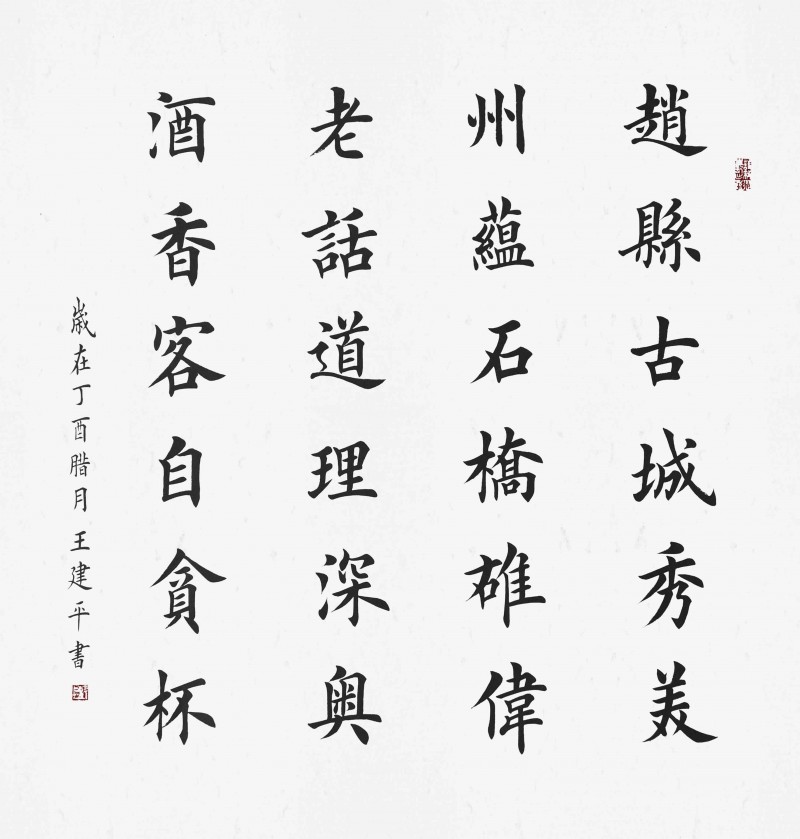 趙縣古城秀美
州蘊石橋雄偉
老話道理深奥
酒香客自貪杯
歳在丁酉腊月王建平書